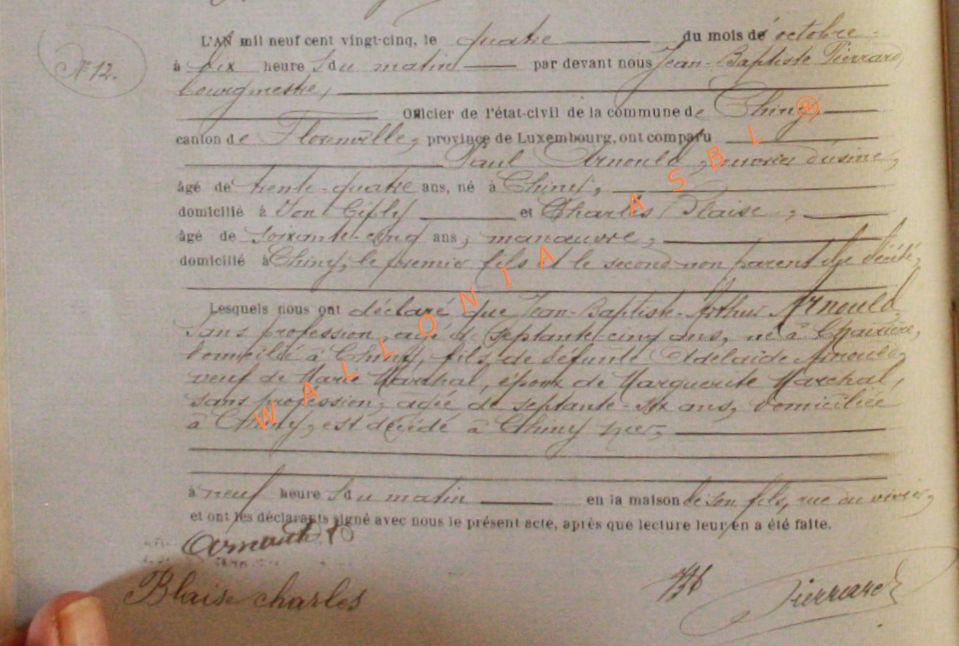 N° 12.
L'AN mil neuf cent vingt-cinq, le quatre du mois de octobre
à dix heures du matin par devant nous Jean-Baptiste Pierrard
bourgmestre,
Officier de l'état-civil de la commune de Chiny,
canton de Florenville, province de Luxembourg, ont comparu
Paul Arnould, ouvrier d'usine,
âgé de trente-quatre ans, né à Chiny,
domicilié à et Charles Blaise,
âgé de soixante-cinq ans, manœuvre,
domicilié à Chiny, le premier fils et le second non parent du décédé,
Lesquels nous ont déclaré que Jean-Baptiste-Arthur Arnould,
sans profession, âgé de septante-cinq ans, né à
domicilié à Chiny, fils de défunte Adelaïde Arnould,
veuf de Marie Marchal, époux de Marguerite Marchal,
sans profession, âgée de septante-six ans, domiciliée
à Chiny, est décédé à Chiny hier,
à neuf heures du matin en la maison de son fils, rue du vivier,
et ont les déclarants signé avec nous le présent acte, après que lecture leur en a été faite.
Arnould
Blaise charles
Pierrard
WALLONIA ASBL